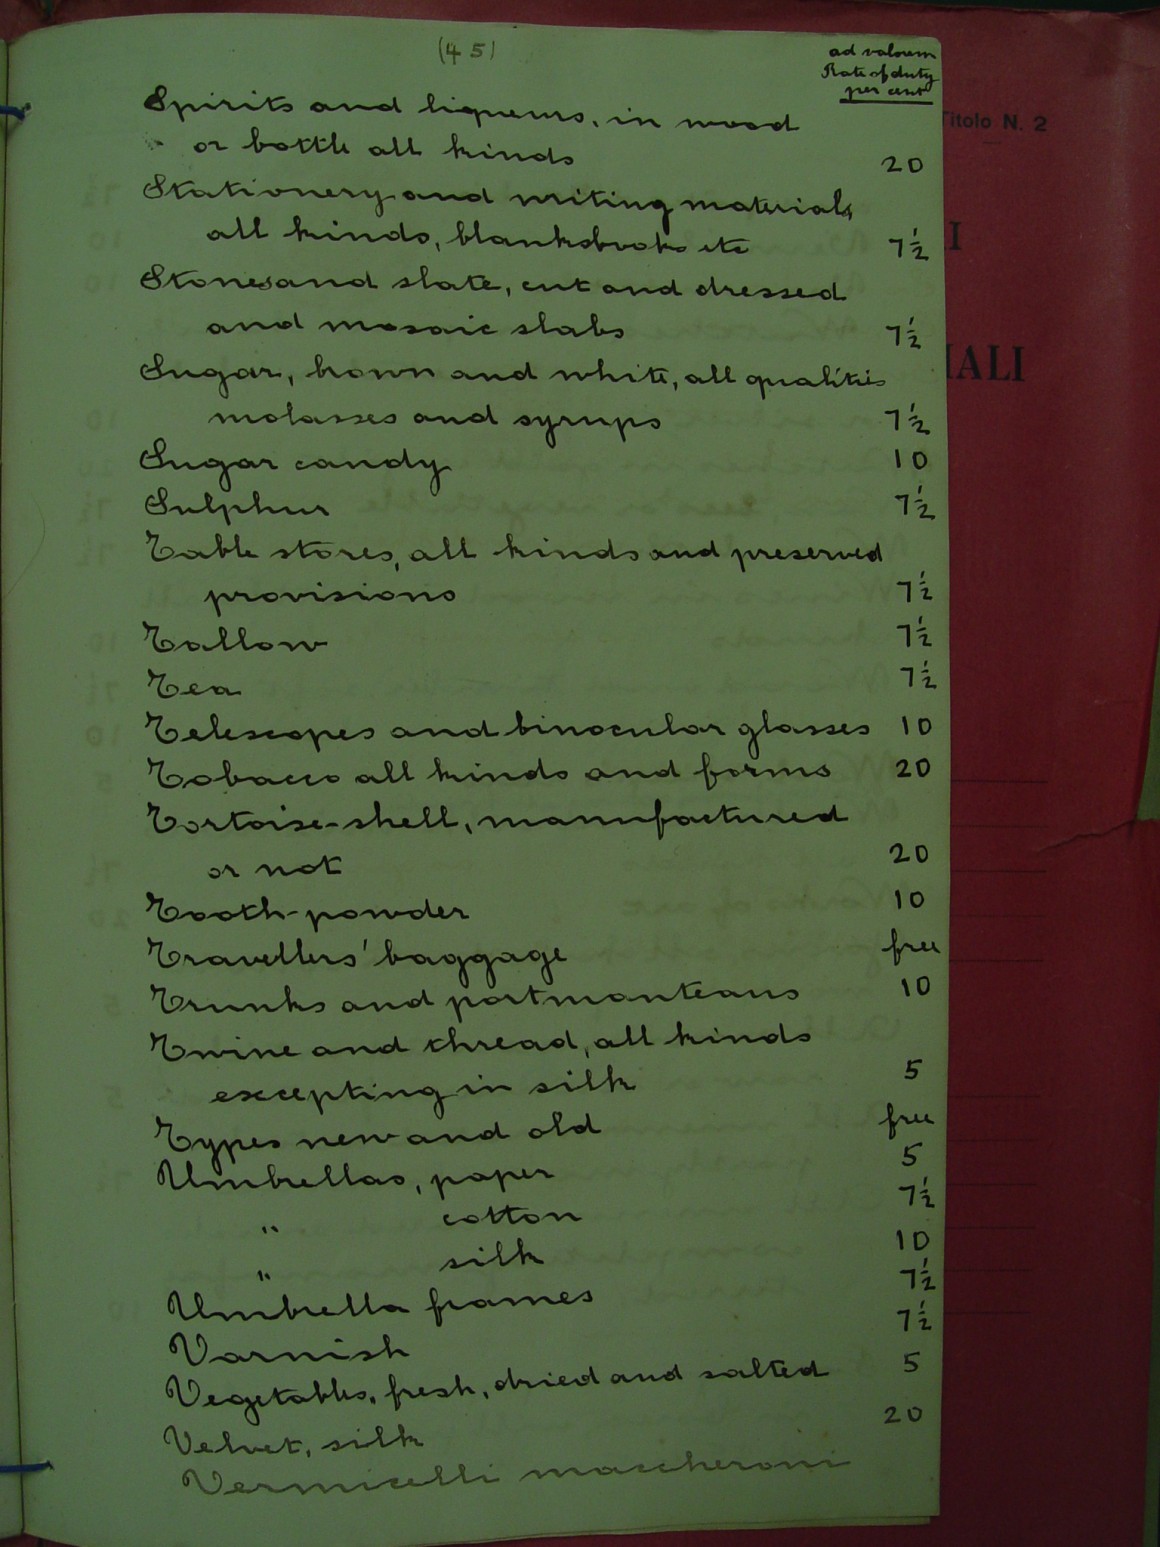 (45)
ad valorem
Rate of duty
per cent
Spirits and liqueurs, in wood
or bottle all kinds 20
Stationery and writing materials,
all kinds, blanksbooks etc 7½
Stones and slate, cut and dressed
and mosaic slabs 7½
Sugar, brown and white, all qualities
molasses and syrups 7½
Sugar candy 10
Sulphur 7½
Table stores, all kinds and preserved
provisions 7½
Tallow 7½
Tea 7½
Telescopes and binocular glasses 10
Tobacco all kinds and forms 20
Tortoise-shell, manufactured
or not 20
Tooth-powder 10
Travellers' baggage free
Trunks and portmanteaus 10
Twine and thread, all kinds
excepting in silk 5
Types new and old free
Umbrellas, paper 5
" cotton 7½
" silk 10
Umbrella frames 7½
Varnish 7½
Vegetables, fresh, dried and salted 5
Velvet, silk 20
Vermicelli maccheroni
Titolo N. 2
I
IALI